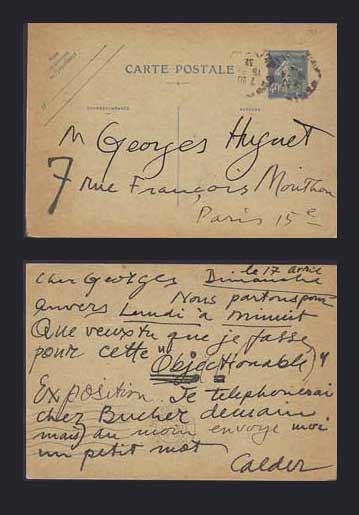 CARTE POSTALE
CORRESPONDANCE
ADRESSE
M Georges Hugnet
7 rue François Mouthon
Paris 15e
le 17 avril
Cher Georges Dimanche
Nous partons pour
anvers Lundi à minuit
Que veux tu que je fasse
pour cette "Objectionable)"
Exposition. Je telephonerai
chez Bucher demain
mais) au moin envoye moi
un petit mot
Calder